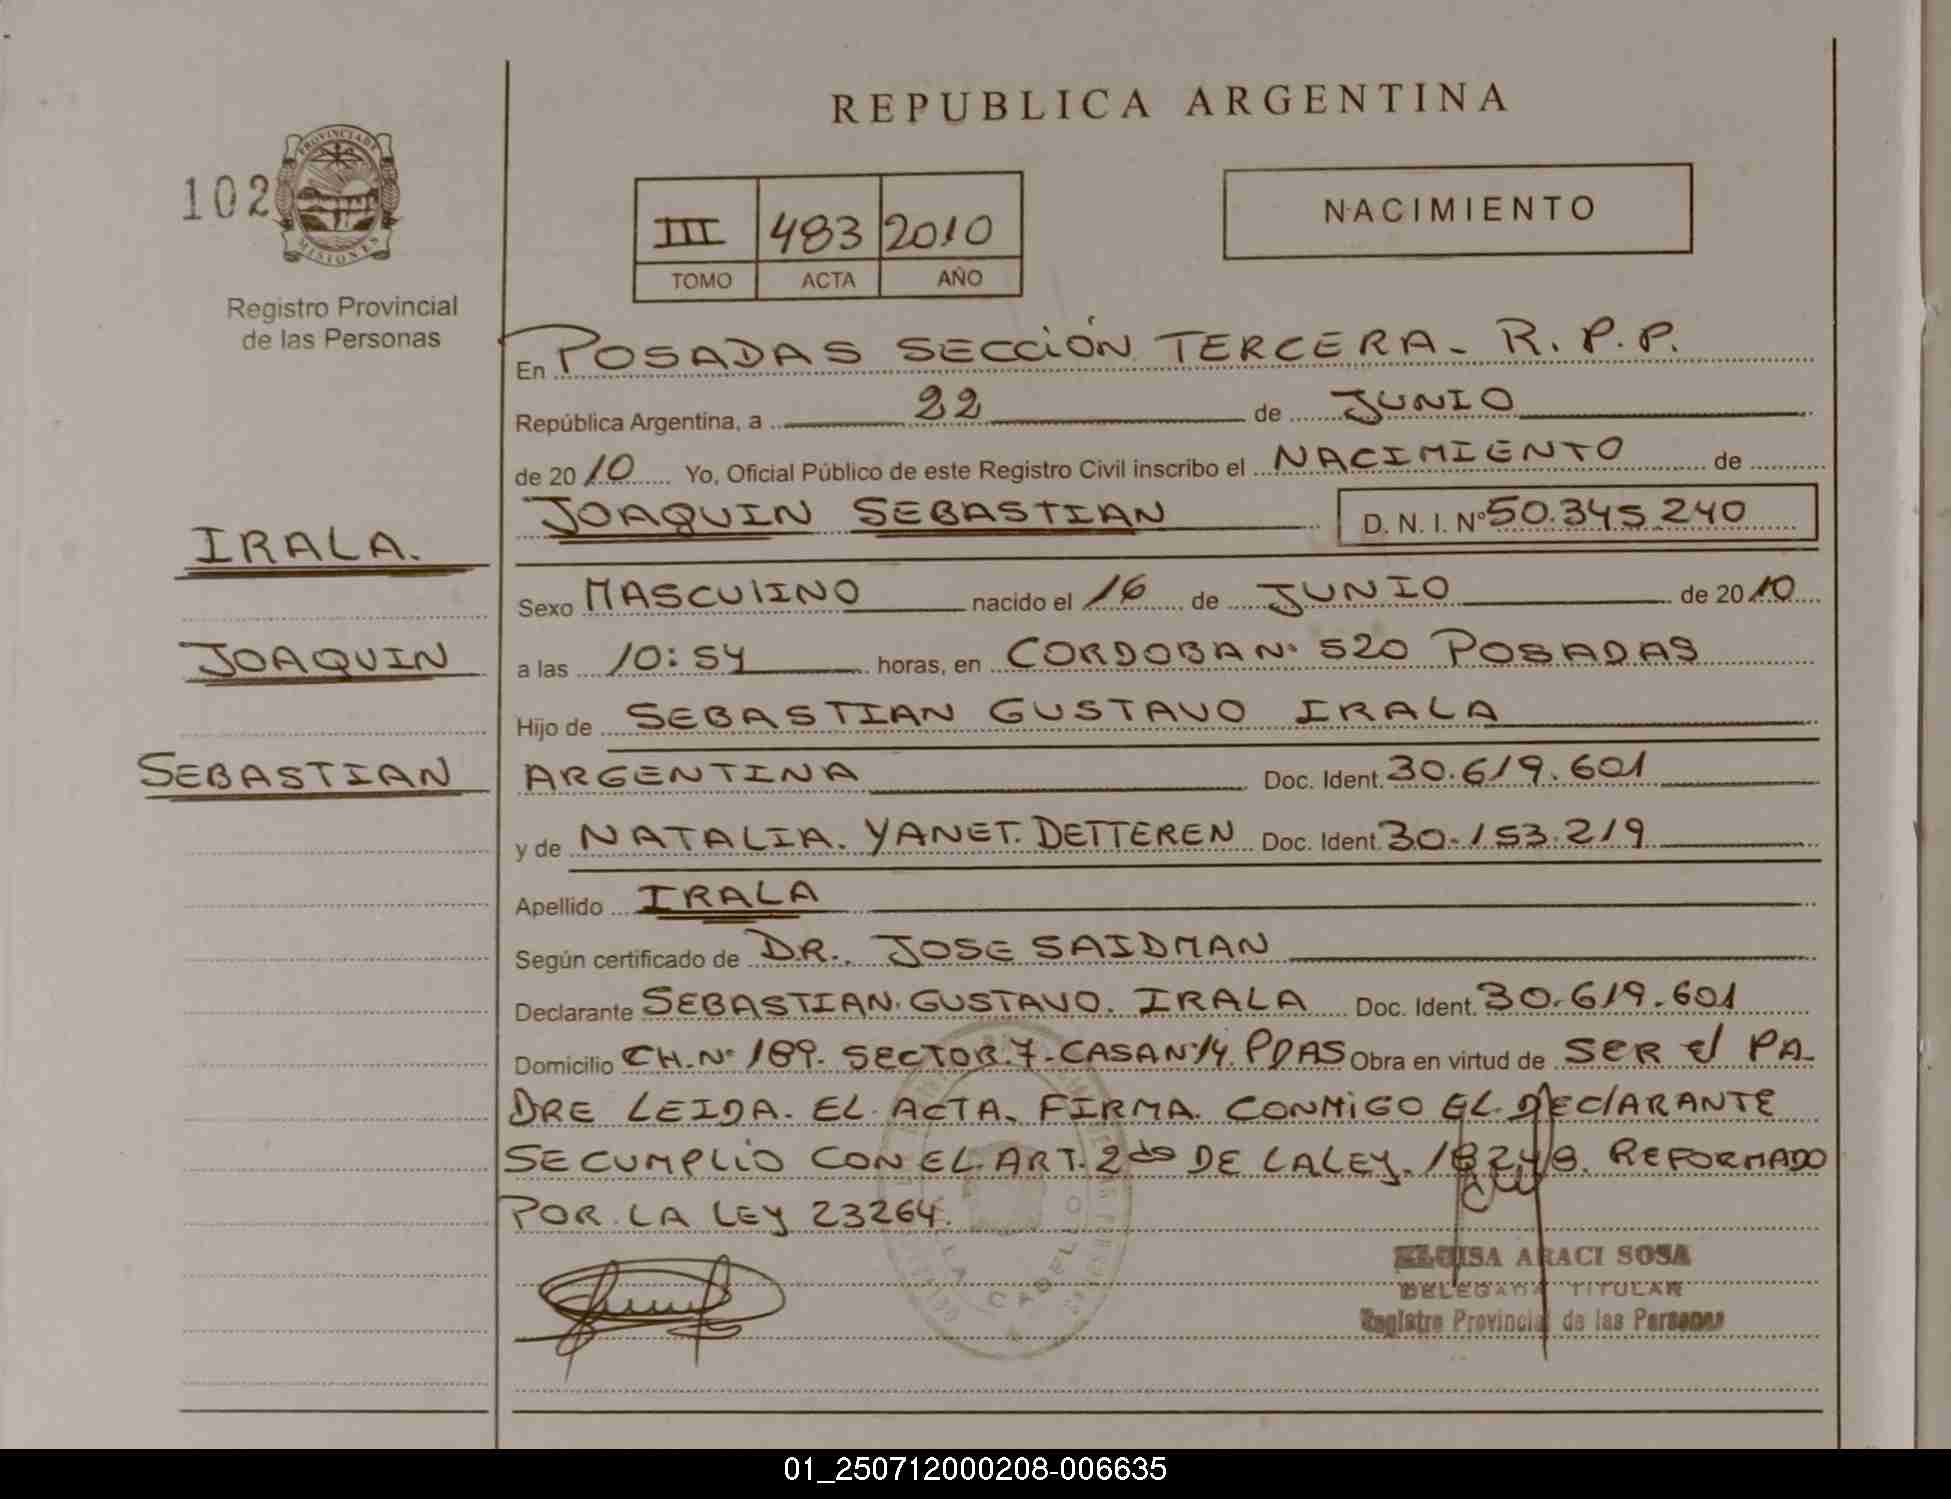 REPUBLICA ARGENTINA
102
PROVINCIA DE
MISIONES
Registro Provincial
de las Personas
III 483 2010
TOMO ACTA AÑO
NACIMIENTO
En POSADAS SECCIÓN TERCERA - R. P. P.
República Argentina, a 22 de JUNIO
de 2010 Yo, Oficial Público de este Registro Civil inscribo el NACIMIENTO de
JOAQUIN SEBASTIAN D. N. I. Nº 50.345.240
IRALA.
JOAQUIN
SEBASTIAN
Sexo MASCULINO nacido el 16 de JUNIO de 2010
a las 10:54 horas, en CORDOBA Nº 520 POSADAS
Hijo de SEBASTIAN GUSTAVO IRALA
ARGENTINA Doc. Ident. 30.619.601
y de NATALIA. YANET. DETTEREN Doc. Ident. 30.153.219
Apellido IRALA
Según certificado de DR. JOSE SAIDMAN
Declarante SEBASTIAN. GUSTAVO. IRALA Doc. Ident. 30.619.601
Domicilio CH. Nº 189. SECTOR. 7 - CASA Nº 14. PDAS Obra en virtud de SER el PA-
DRE LEIDA. EL. ACTA. FIRMA. CONMIGO EL. DEClARANTE
SE CUMPLIO CON EL. ART. 2do DE LA LEY. 18248. REFORMADO
POR. LA LEY 23264.
ELOISA ARACI SOSA
DELEGADA TITULAR
Registro Provincial de las Personas
VILLA CABELLO
01_250712000208-006635